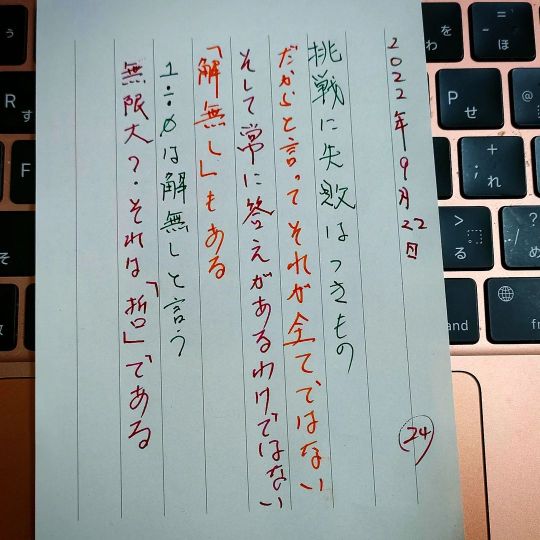 2022年9月22日
24
挑戦に失敗はつきもの
だからと言ってそれが全てではない
そして常に答えがあるわけではない
「解無し」もある
1÷0は解無しと言う
無限大?・それは「哲」である
わ
ー
ほ
P
せ
@
;
+
れ
>
る
?
め
and
fn
R
す
F
そ
う